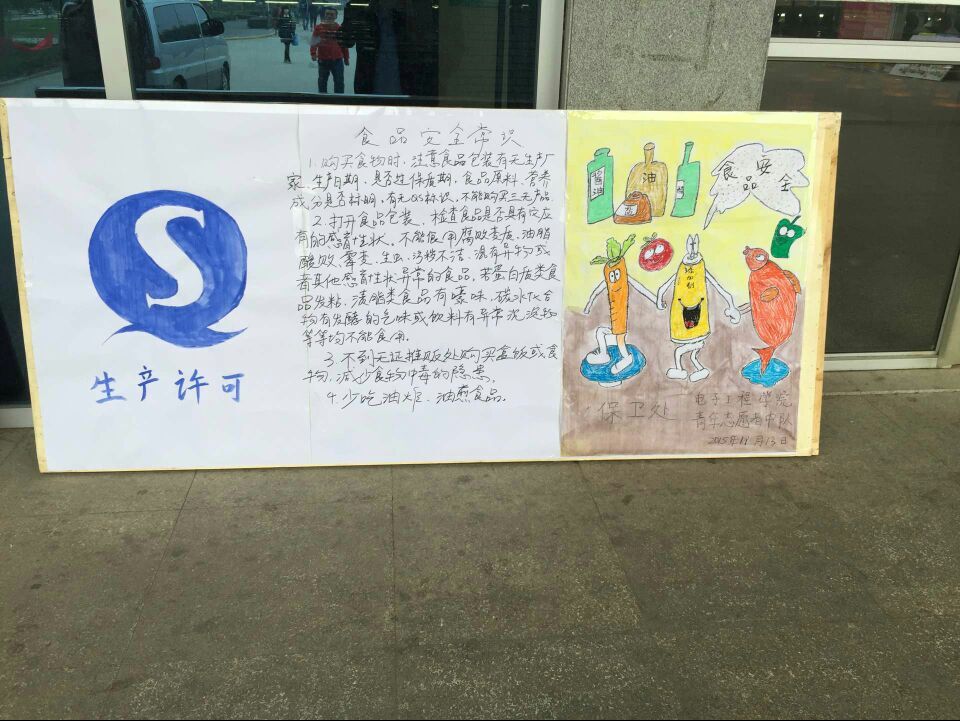 S
生产许可
食品安全常识
1.购买食物时,注意食品包装有无生产厂
家、生产日期,是否过保质期,食品原料、营养
成分是否标明,有无QS标识,不能购买三无产品
2.打开食品包装、检查食品是否具有它应
有的感官性状,不能食用腐败变质、油脂
酸败、霉变、生虫、污秽不洁、混有异物或
者其他感官性状异常的食品,若蛋白质类食
品发粘,渍脂类食品有嚎味,碳水化合
物有发酵的气味或饮料有异常沉淀物
等等均不能食用。
3.不到无证摊贩处购买盒饭或食
物,减少食物中毒的隐患。
4.少吃油炸、油煎食品。
酱油
油
醋
食品安全
添加剂
保卫处
电子工程学院
青年志愿者中队
2015年11月13日